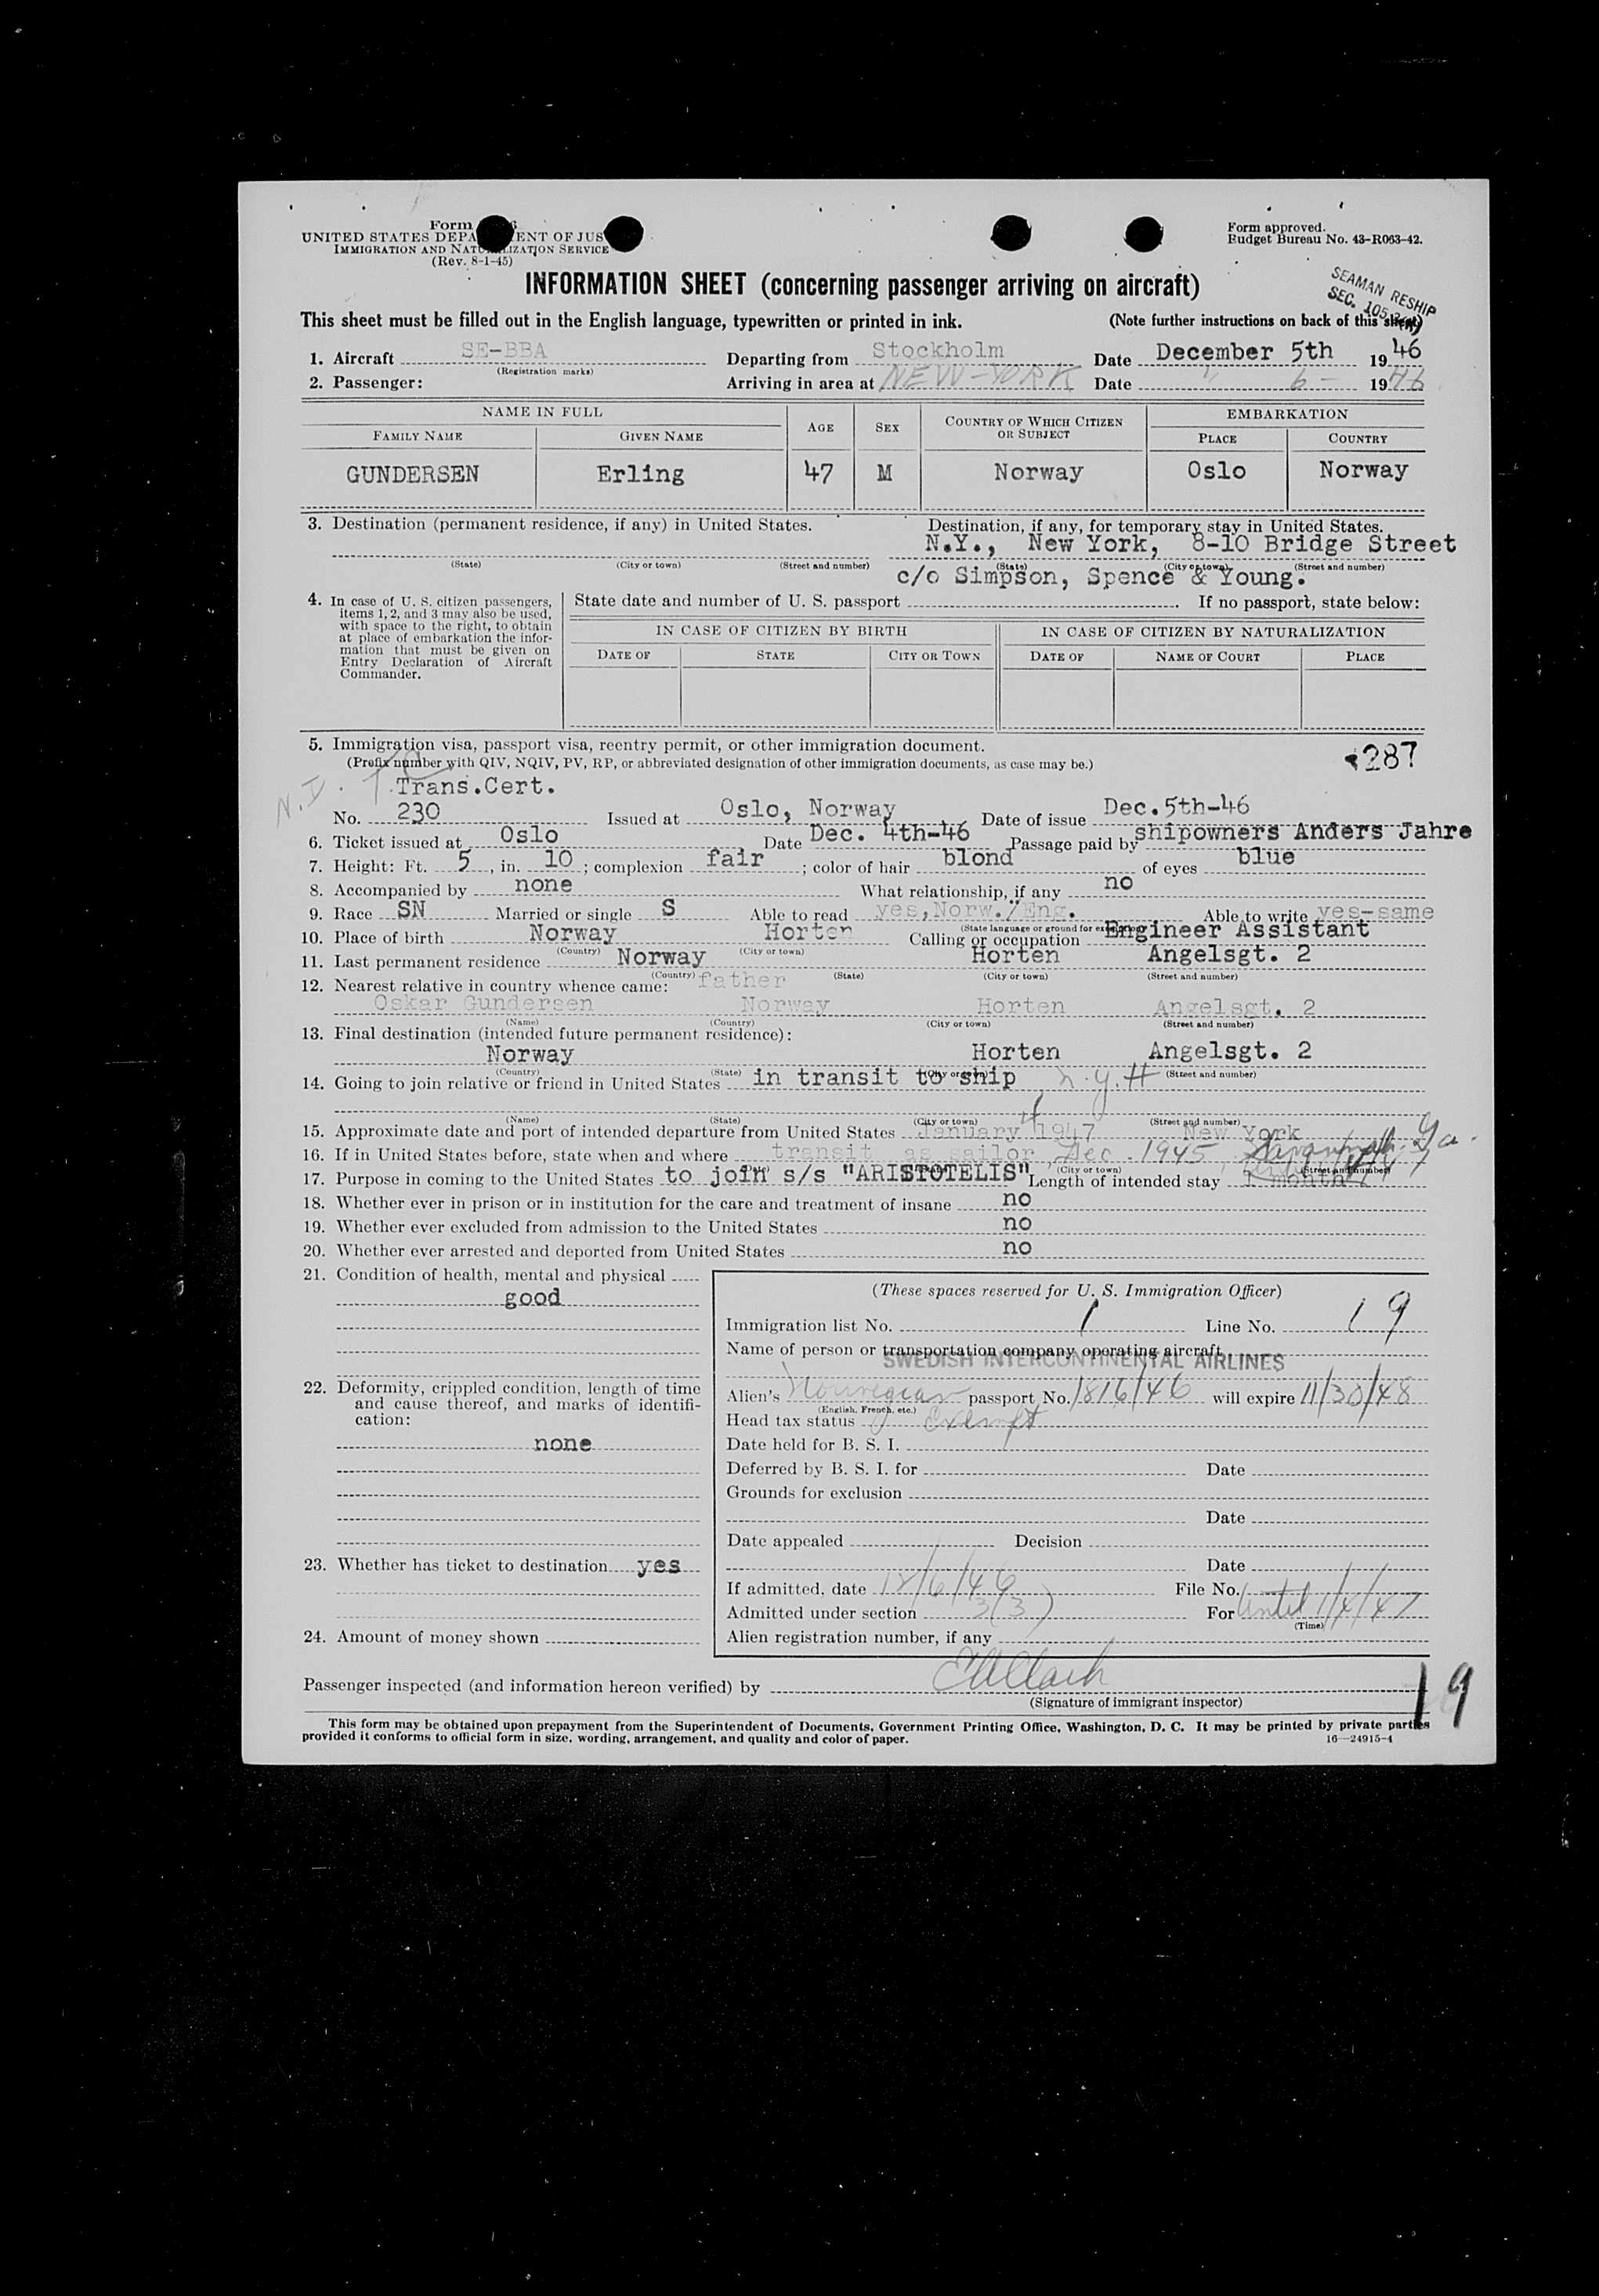 Form
UNITED STATES DEPA ENT OF JUS
IMMIGRATION AND NATURALIZATION SERVICE
(Rev. 8-1-45)
Form approved.
Budget Bureau No. 43-R063-42.
INFORMATION SHEET (concerning passenger arriving on aircraft)
SEAMAN RESHIP
SEC. 105.3
This sheet must be filled out in the English language, typewritten or printed in ink.
(Note further instructions on back of this sheet)
1. Aircraft SE-BBA Departing from Stockholm Date December 5th 1946
(Registration marks)
2. Passenger: Arriving in area at NEW-YORK Date " 6- 1946
NAME IN FULL AGE SEX COUNTRY OF WHICH CITIZEN OR SUBJECT EMBARKATION
FAMILY NAME GIVEN NAME PLACE COUNTRY
GUNDERSEN Erling 47 M Norway Oslo Norway
3. Destination (permanent residence, if any) in United States. Destination, if any, for temporary stay in United States.
N.Y., New York, 8-10 Bridge Street
(State) (City or town) (Street and number) (State) (City or town) (Street and number)
c/o Simpson, Spence & Young.
4. In case of U. S. citizen passengers, items 1, 2, and 3 may also be used, with space to the right, to obtain at place of embarkation the information that must be given on Entry Declaration of Aircraft Commander.
State date and number of U. S. passport . If no passport, state below:
IN CASE OF CITIZEN BY BIRTH IN CASE OF CITIZEN BY NATURALIZATION
DATE OF STATE CITY OR TOWN DATE OF NAME OF COURT PLACE
5. Immigration visa, passport visa, reentry permit, or other immigration document.
(Prefix number with QIV, NQIV, PV, RP, or abbreviated designation of other immigration documents, as case may be.)
287
N.I. T.C.
Trans.Cert.
No. 230 Issued at Oslo, Norway Date of issue Dec.5th-46
6. Ticket issued at Oslo Date Dec. 4th-46 Passage paid by shipowners Anders Jahre
7. Height: Ft. 5, in. 10; complexion fair; color of hair blond of eyes blue
8. Accompanied by none What relationship, if any no
9. Race SN Married or single S Able to read yes, Norw./Eng. Able to write yes-same
(State language or ground for exemption)
10. Place of birth Norway Horten Calling or occupation Engineer Assistant
(Country) (City or town)
11. Last permanent residence Norway Horten Angelsgt. 2
(Country) (State) (City or town) (Street and number)
12. Nearest relative in country whence came: father
Oskar Gundersen Norway Horten Angelsgt. 2
(Name) (Country) (City or town) (Street and number)
13. Final destination (intended future permanent residence):
Norway Horten Angelsgt. 2
(Country) (State) (City or town) (Street and number)
14. Going to join relative or friend in United States in transit to ship
(Name) (State) (City or town) (Street and number)
15. Approximate date and port of intended departure from United States January 1947 New York
16. If in United States before, state when and where transit as sailor, Dec. 1945, Savannah, Ga.
(City or town) (Street and number)
17. Purpose in coming to the United States to join s/s "ARISTOTELIS" Length of intended stay 1 month
18. Whether ever in prison or in institution for the care and treatment of insane no
19. Whether ever excluded from admission to the United States no
20. Whether ever arrested and deported from United States no
21. Condition of health, mental and physical
good
22. Deformity, crippled condition, length of time and cause thereof, and marks of identification:
none
23. Whether has ticket to destination yes
24. Amount of money shown
(These spaces reserved for U. S. Immigration Officer)
Immigration list No. 1 Line No. 19
Name of person or transportation company operating aircraft
SWEDISH INTERCONTINENTAL AIRLINES
Alien's Norwegian passport No. 1816/46 will expire 11/30/48
(English, French, etc.)
Head tax status Exempt
Date held for B. S. I.
Deferred by B. S. I. for Date
Grounds for exclusion
Date
Date appealed Decision
Date
If admitted, date 12/6/46 File No.
Admitted under section 3(3) For Until 1/4/47
(Time)
Alien registration number, if any
Passenger inspected (and information hereon verified) by
(Signature of immigrant inspector)
19
This form may be obtained upon prepayment from the Superintendent of Documents, Government Printing Office, Washington, D. C. It may be printed by private parties
provided it conforms to official form in size, wording, arrangement, and quality and color of paper.
16—24915-4